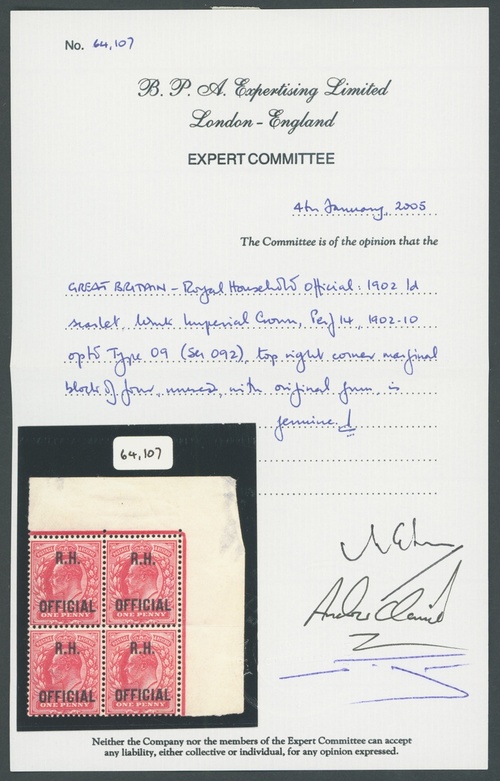 No. 64,107
B. P. A. Expertising Limited
London - England
EXPERT COMMITTEE
4th January, 2005
The Committee is of the opinion that the
GREAT BRITAIN - Royal Household Official: 1902 1d
scarlet, Wmk Imperial Crown, Perf 14, 1902-10
optd Type 09 (SG 092), top right corner marginal
block of four, unused, with original gum, is
genuine.
64,107
R.H. R.H.
OFFICIAL OFFICIAL
ONE PENNY ONE PENNY
R.H. R.H.
OFFICIAL OFFICIAL
ONE PENNY ONE PENNY
Neither the Company nor the members of the Expert Committee can accept
any liability, either collective or individual, for any opinion expressed.